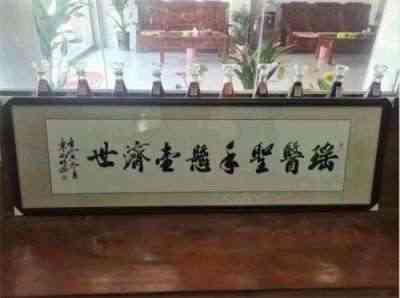 瑶醫聖手懸壺濟世